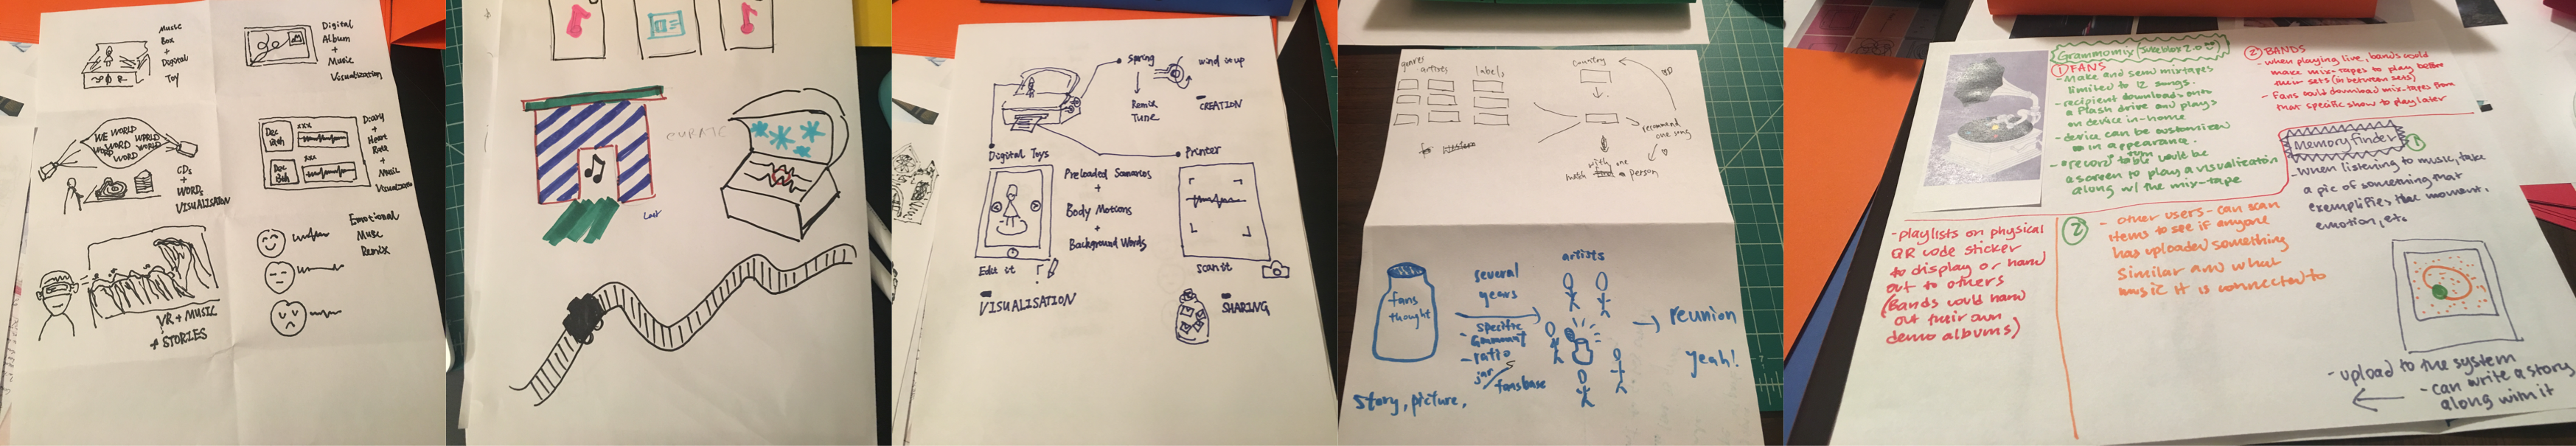 Music
Box
+
Digital
Toy
Digital
Album
+
Music
Visualization
WE WORD
WORD WORLD
WORD WORD
WORD
CDs
+
WORDs
VISUALISATION
Dec
xxx
Dec
xxx
Diary
+
Heart
Rate
+
Music
VR + MUSIC
+ STORIES
Emotional
Music
Remix
CURATE
Spring
wind it up
Remix
Tune
CREATION
Digital Toys
Printer
Preloaded Scenarios
+
Body Motions
+
Background Words
Edit it
Scan it
VISUALISATION
SHARING
genre
artists
labels
country
recommend
one song
with one
match
person
fans
thought
several
years
specific
ratio
jar
fansbase
artists
reunion
yeah!
story, picture,
Grammomix (Jukebox 2.0)
① FANS
- Make and send mixtapes
limited to 12 songs.
- recipient downloads onto
a flash drive and plays
on device in-home
- device can be customized
in appearance.
- "record" would be
a screen to play a visualization
along w/ the mix-tape
② BANDS
- when playing live, bands could
make mix-tapes to play before
their sets (in between sets)
- Fans could download mix-tapes from
that specific show to play later
Memory finder
①
- When listening to music, take
a pic of something that
exemplifies that moment,
emotion, etc
- playlists on physical
QR code sticker
to display or hand
out to others
(Bands could hand
out their own
demo albums)
②
- other users - can scan
items to see if anyone
has uploaded something
similar and what
music it is connected to
- upload to the system
- can write a story
along with it